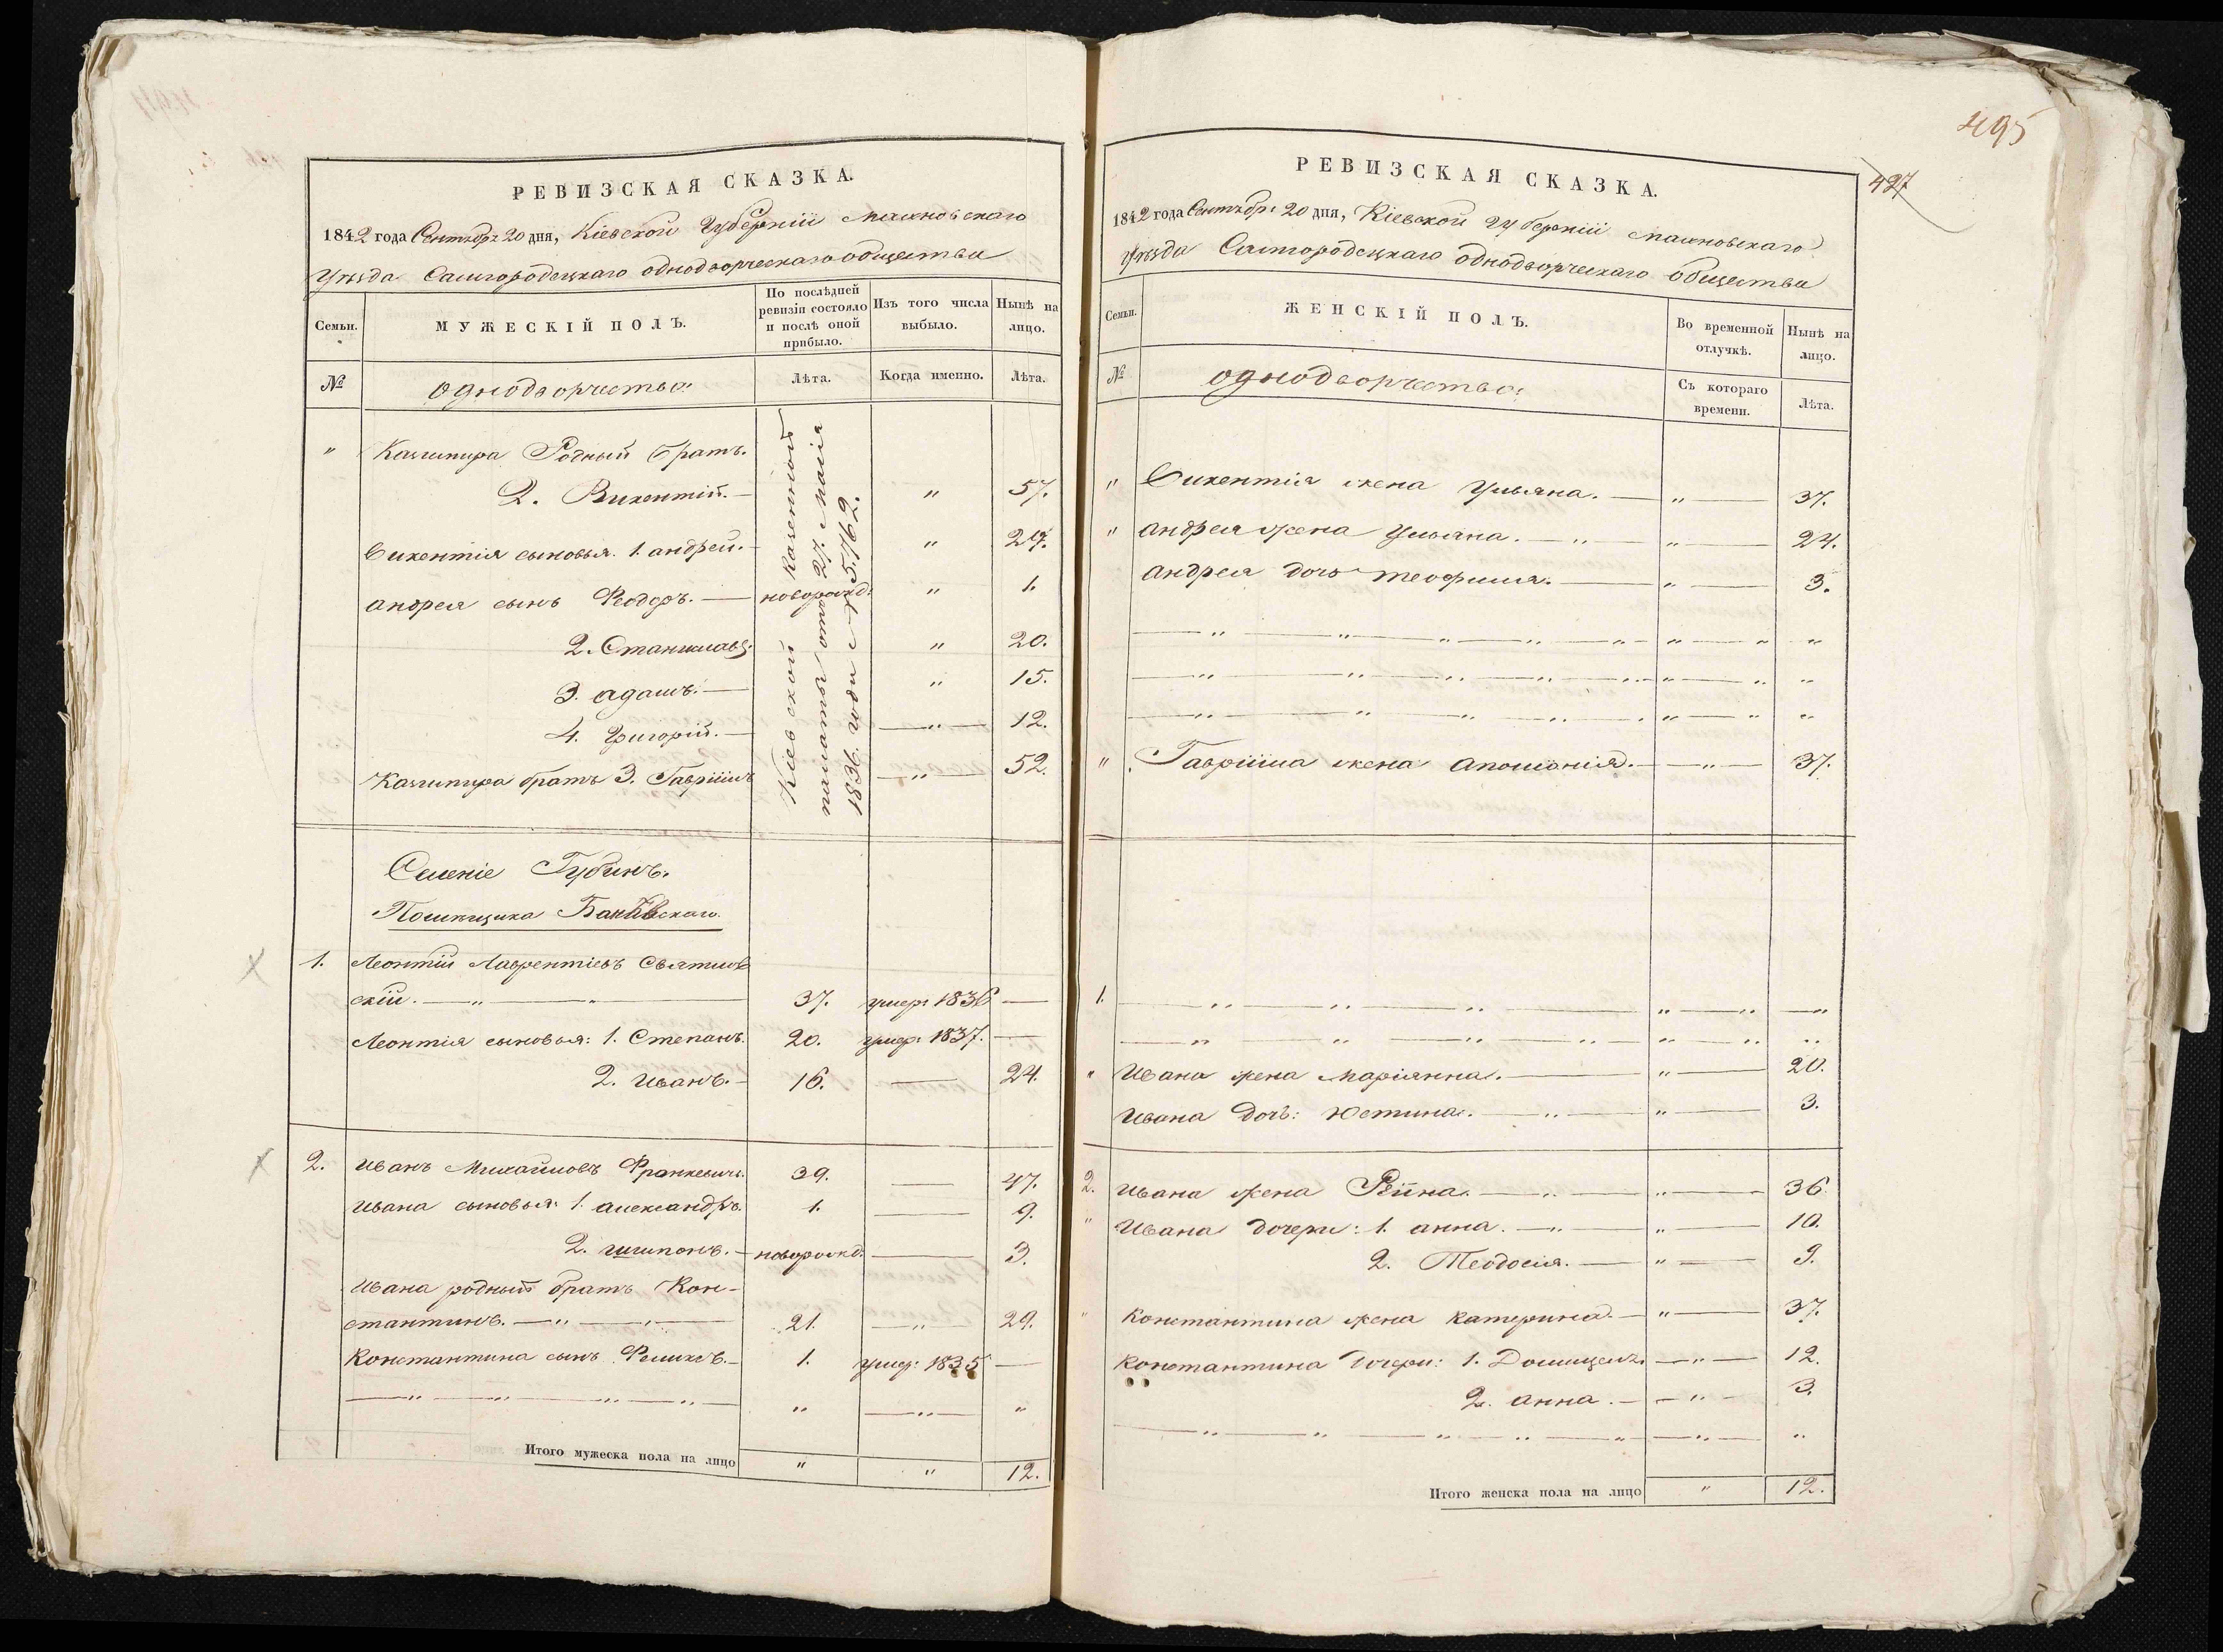 РЕВИЗСКАЯ СКАЗКА.
1842 года Сентябр: 20 дня, Кіевской Губерніи Махновскаго
Уѣзда Самгородецкаго однодворческаго общества
Семьи.
МУЖЕСКІЙ ПОЛЪ.
По послѣдней ревизіи состояло и послѣ оной прибыло.
Изъ того числа выбыло.
Нынѣ на лицо.
№
однодворчество:
Лѣта.
Когда именно.
Лѣта.
" Казимира Родный братъ.
2. Викентій. — " 57.
Викентія сыновья. 1. андрей. — " 24.
андрея сынъ Феодоръ. — новорожд: " 1.
2. Станиславъ. " 20.
3. адамъ. — " 15.
4. Григорій. — " 12.
Казимира братъ 3. Гавріилъ — " — 52.
Кіевской Казенной
палаты отъ 27. Маія
1836. года № 5.762.
Селеніе Губинъ.
Помѣщика скаго.
1. Леонтій Лаврентіевъ
скій. — " — " — 37. умер: 1836 —
Леонтія сыновья: 1. Степанъ. 20. умер: 1837. —
2. Иванъ. — 16. — 24.
2. Иванъ Михайловъ Франкевичъ. 39. — 47.
Ивана сыновья: 1. александръ. 1. — 9.
2. — новорожд: — 3.
Ивана родный братъ Кон-
стантинъ. — " — " — 21. — " — 29.
Константина сынъ Феликсъ. — 1. умер: 1835 —
— " — " — " — " — " — " — "
Итого мужеска пола на лицо " " 12.
495
427
РЕВИЗСКАЯ СКАЗКА.
1842 года Сентябр: 20 дня, Кіевской Губерніи Махновскаго
Уѣзда Самгородецкаго однодворческаго общества
Семьи.
ЖЕНСКІЙ ПОЛЪ.
Во временной отлучкѣ.
Нынѣ на лицо.
№
однодворчество:
Съ котораго времени.
Лѣта.
" Викентія жена Ульяна. — " — 37.
" андрея жена Ульяна. — " — " — 24.
андрея дочь Теофила. — " — 3.
— " — " — " — " — " — " — " "
— " — " — " — " — " — " — " "
— " — " — " — " — " — " — " "
" Гавріила жена аполонія. — " — 37.
1. — " — " — " — " — " — "
— " — " — " — " — " — " "
" Ивана жена Маріянна. — " — 20.
Ивана дочь: Юстина. — " — " — 3.
2. Ивана жена — " — " — 36
" Ивана дочери: 1. анна. — " — " — 10.
2. Теодосія. — " — 9.
" Константина жена Катерина. — " — 37.
Константина дочери: 1. — " — 12.
2. анна. — " — 3.
— " — " — " — " — " — " — "
Итого женска пола на лицо " 12.